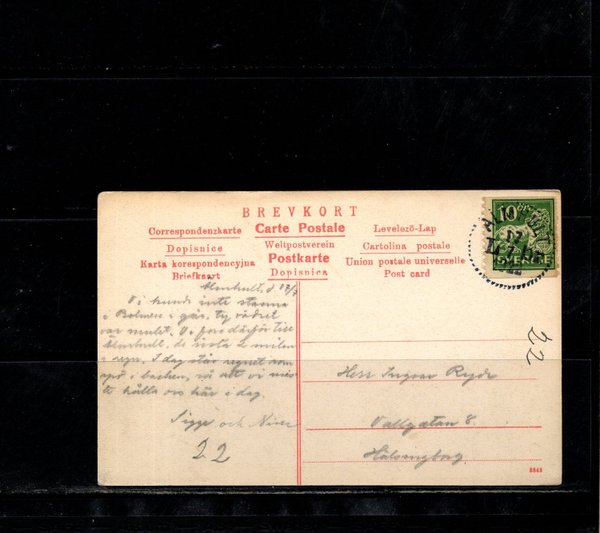 BREVKORT
Correspondenzkarte Carte Postale Levelező-Lap
Dopisnice Weltpostverein Cartolina postale
Karta korespondencyjna Postkarte Union postale universelle
Briefkaart Dopisnica Post card
10
SVERIGE
Älmhult, d. 17/7
Vi kunde inte stanna
i Bolmen i går, ty vädret
var mulet. Vi foro därför till
Älmhult, de sista 2 milen
i regn. I dag står regnet som
spö i backen, så att vi
hålla oss här i dag.
Sigge och
22
22
Herr Ingvar Ryde
Vallgatan 8.
Hälsingborg